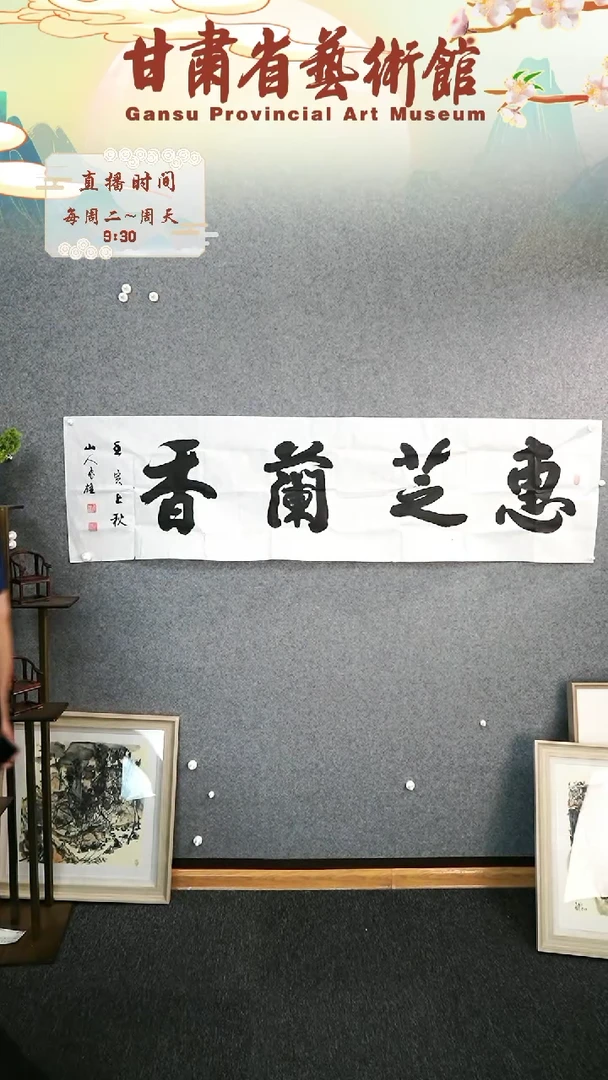 甘肅省藝術館
Gansu Provincial Art Museum
直播时间
每周二~周天
9:30
惠芝蘭香
壬寅上秋
山人